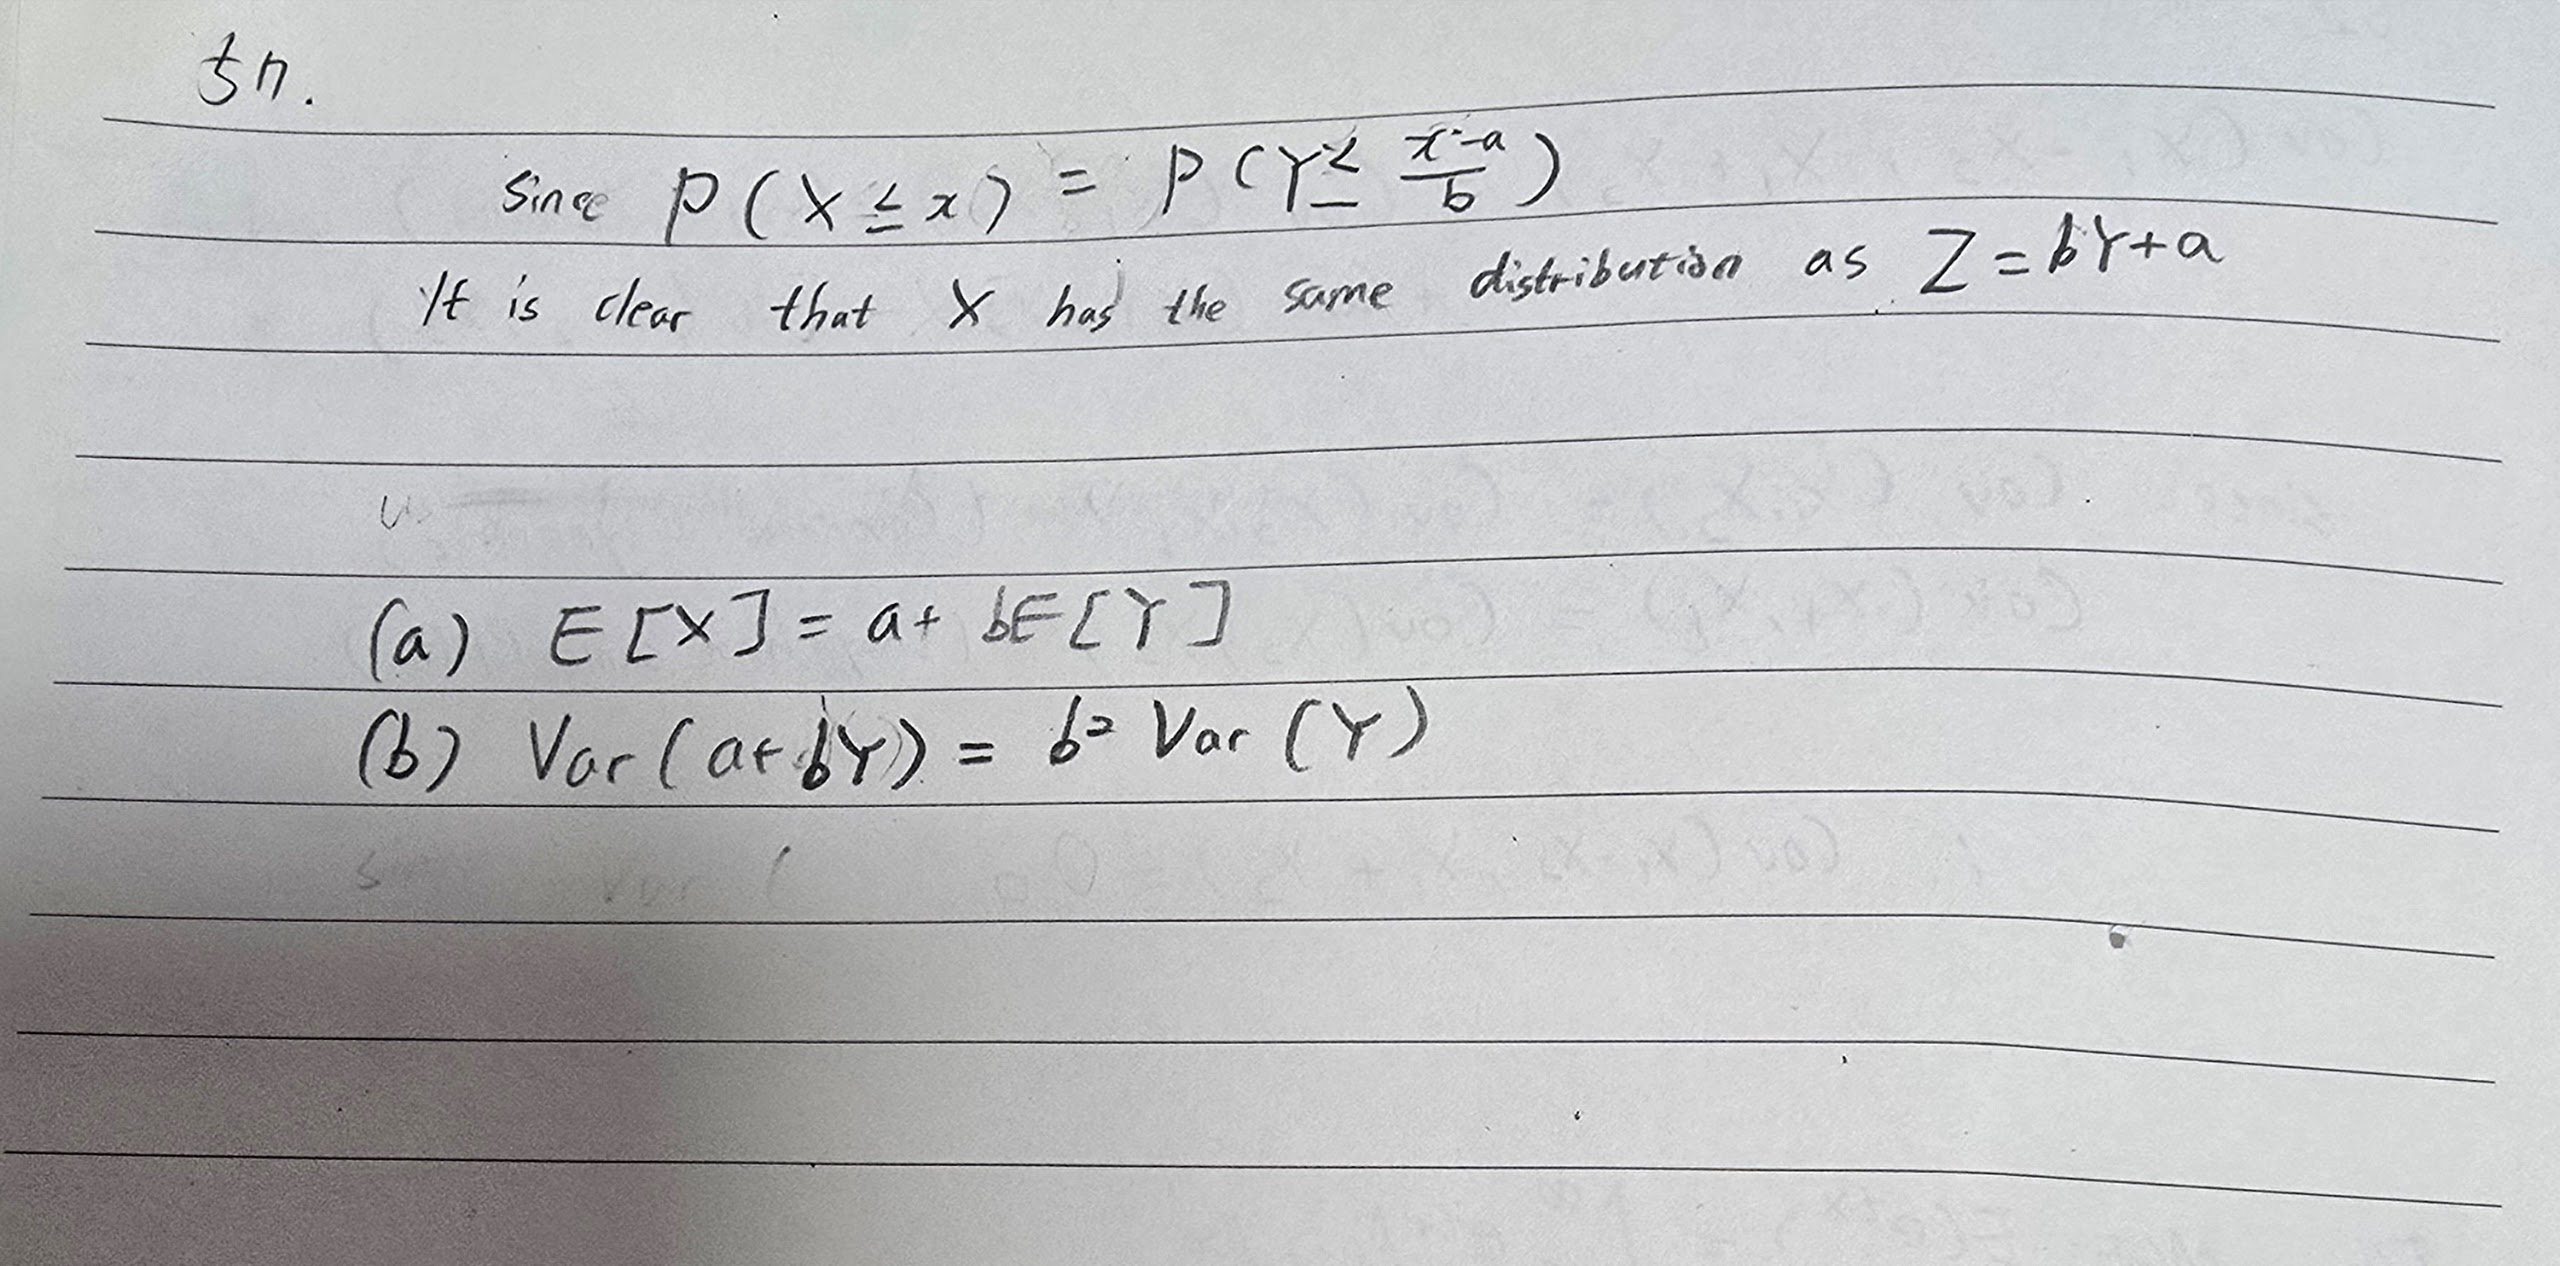 57.
Since P(X ≤ x) = P(Y ≤ \frac{x-a}{b})
It is clear that X has the same distribution as Z = bY + a
(a) E[X] = a + bE[Y]
(b) Var(a + bY) = b² Var(Y)